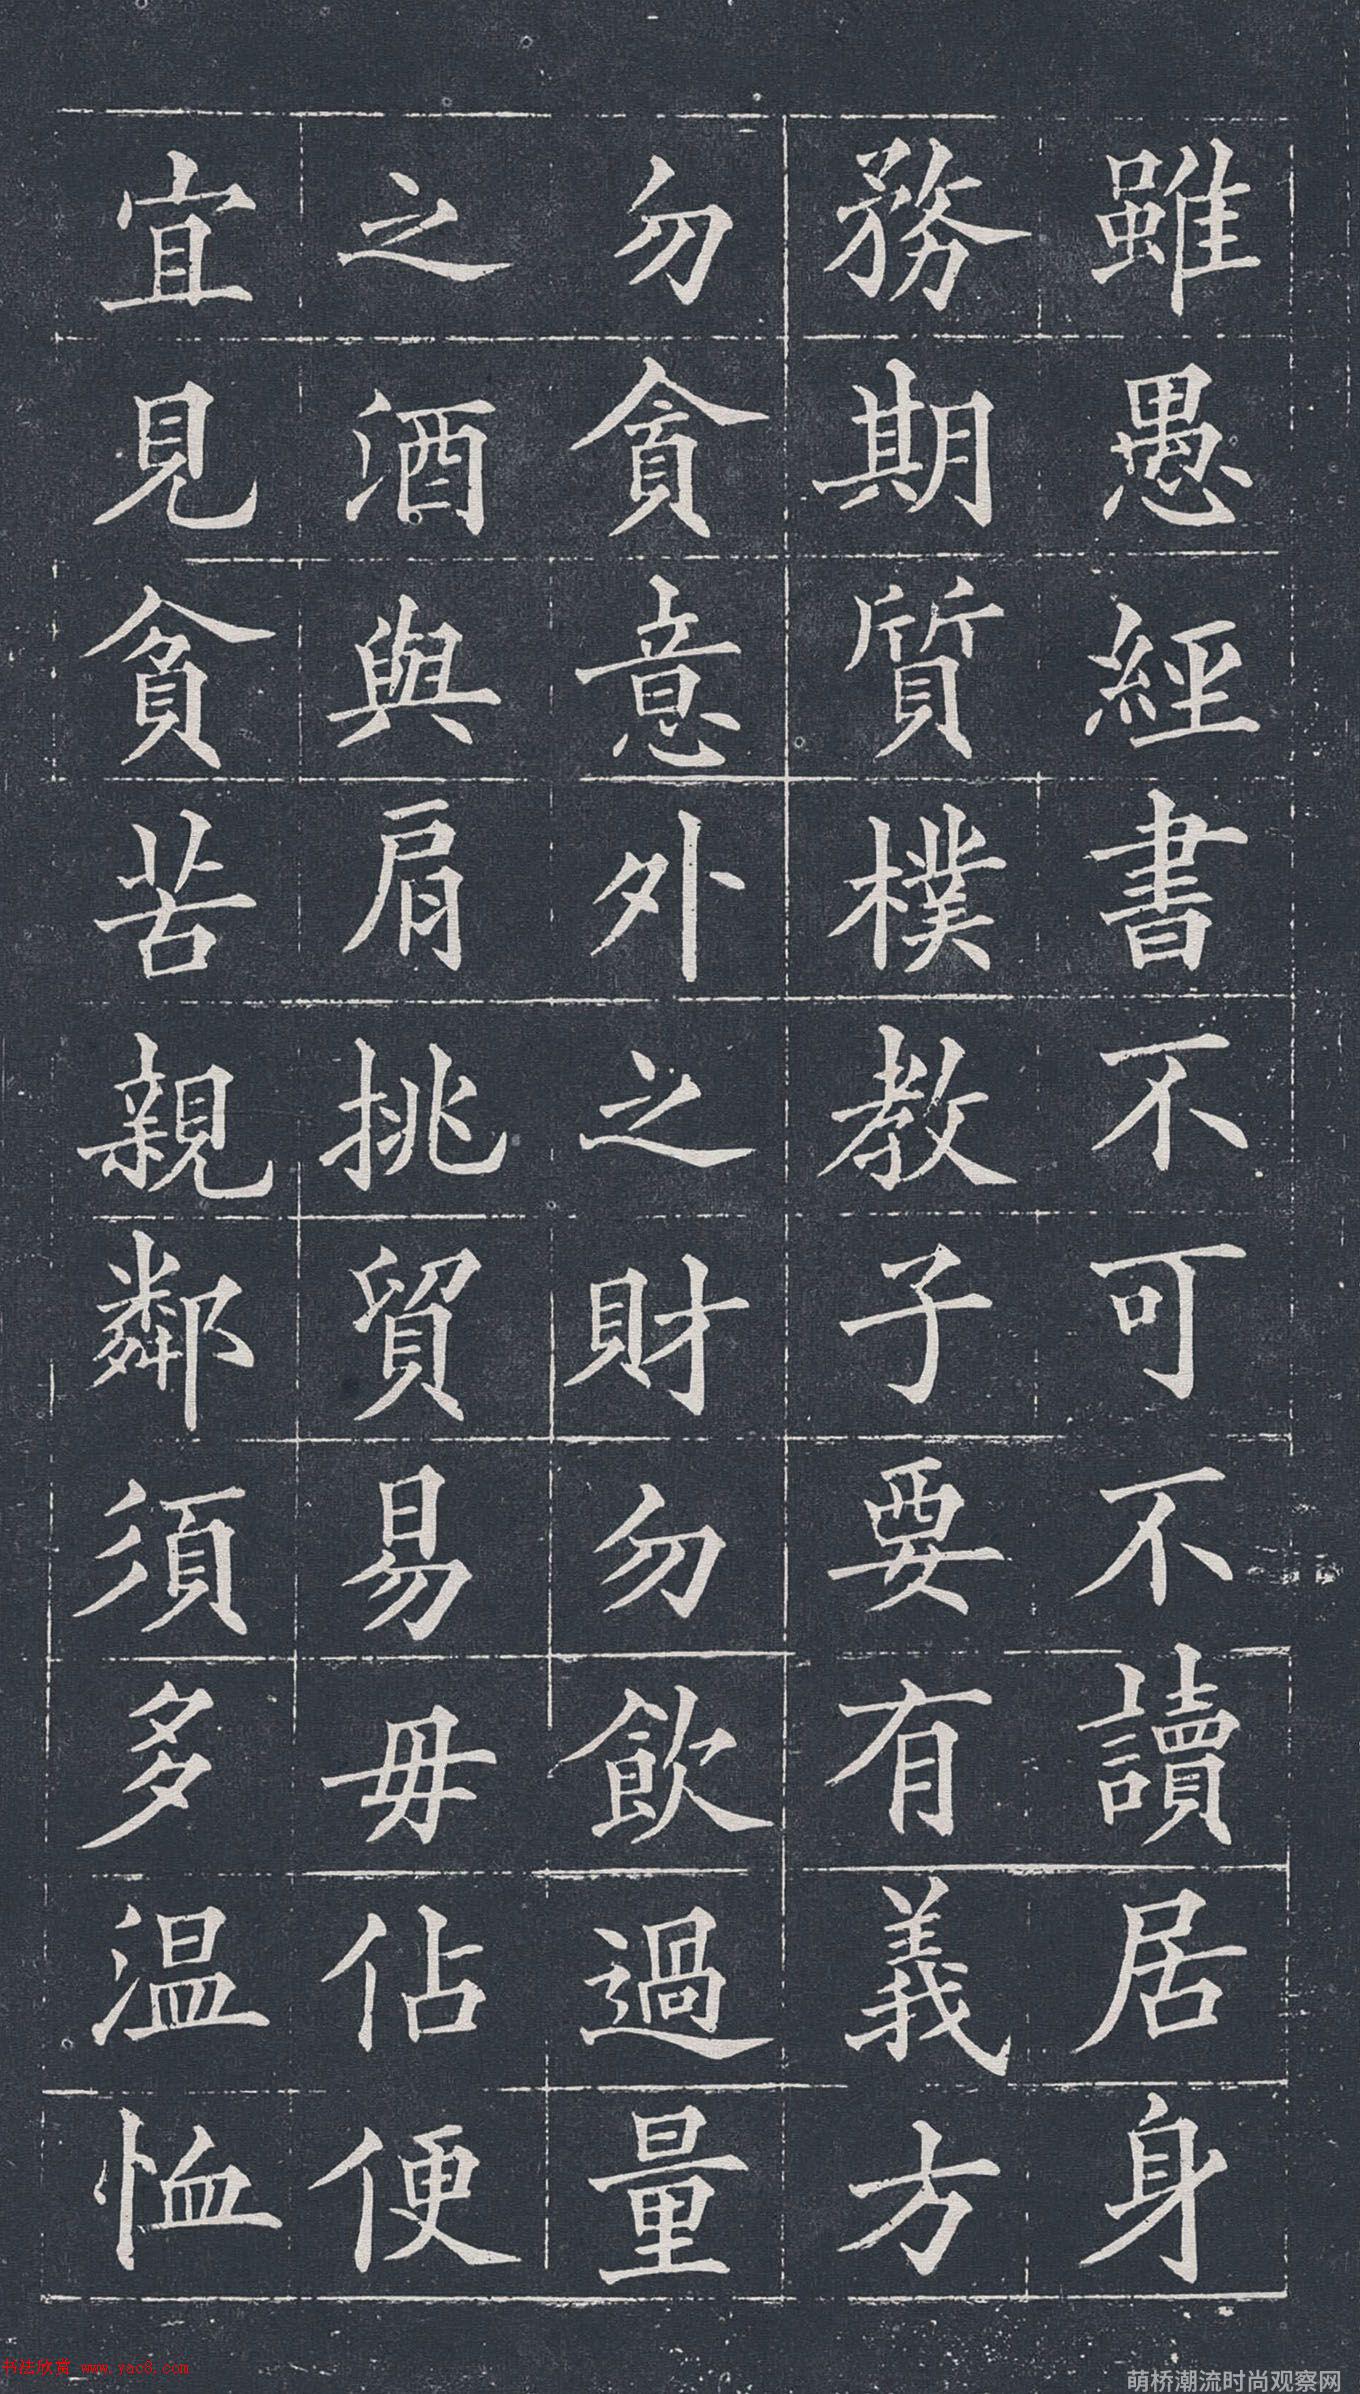 雖愚經書不可不讀居身
務期質樸教子要有義方
勿貪意外之財勿飲過量
之酒與肩挑貿易毋佔便
宜見貧苦親鄰須多温恤
书法欣赏 www.yac8.com
萌桥潮流时尚观察网